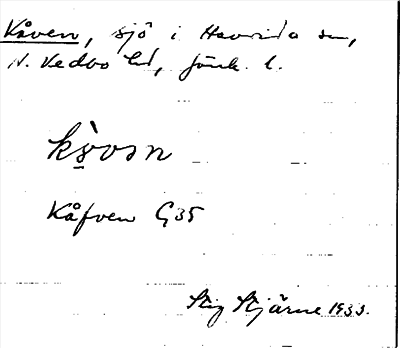 Kåven, sjö i Haurida sn,
N. Vedbo hd, Jönk. l.
Kåfven G35
Stig Stjärne 1933.